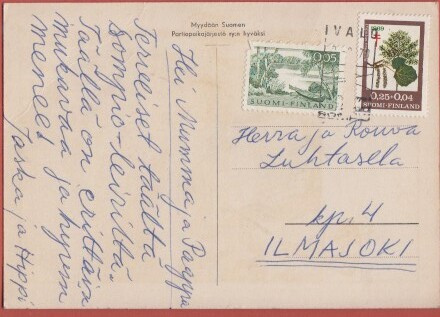 Myydään Suomen
Partiopoikajärjestö ry:n hyväksi
Hei Mumma ja Pappa
Terveiset täältä
Sompio-leiriltä.
Täällä on erittäin
mukavaa ja hyvin
menee!
Jaska ja Hippi
IVALO
0,05
SUOMI-FINLAND
0,25+0,04
SUOMI-FINLAND
Herra ja Rouva
Luhtasela
kp. 4
ILMAJOKI